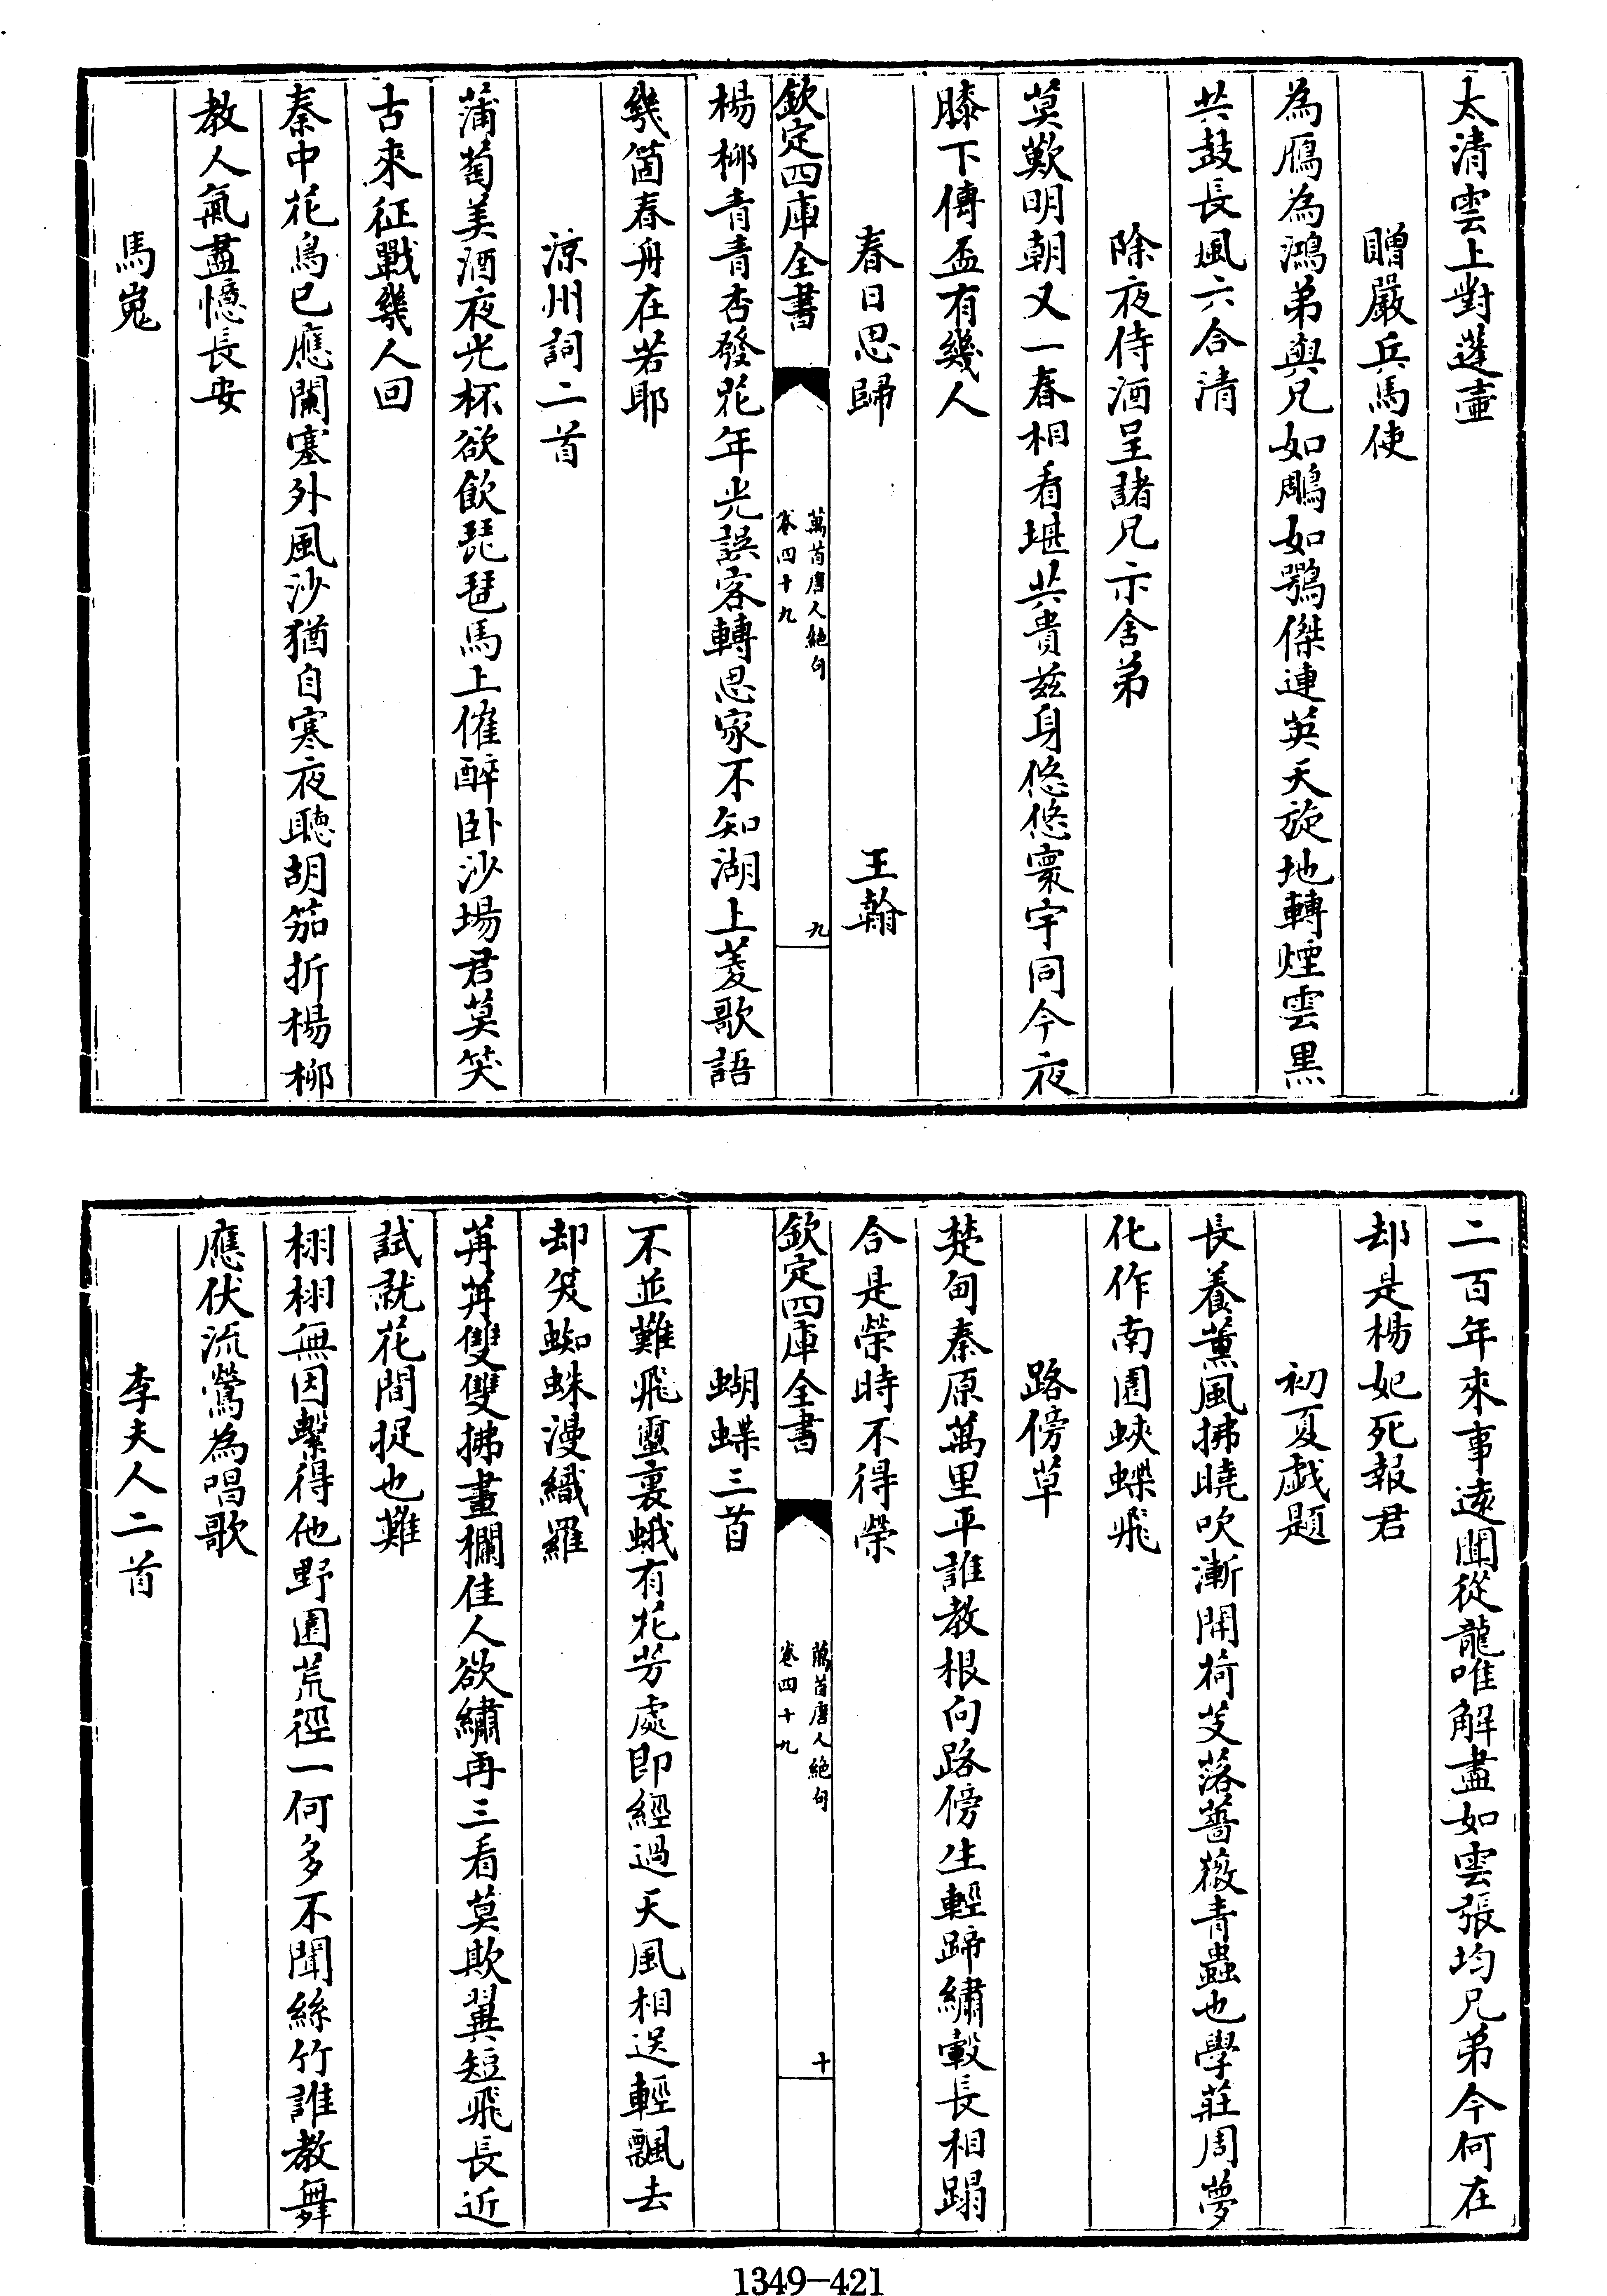 太清雲上對蓬壷
贈嚴兵馬使
為鴈為鴻弟與兄如鵰如鶚傑連英天旋地轉煙雲黒
共鼓長風六合清
除夜侍酒呈諸兄示舍弟
莫歎明朝又一春相看堪共貴兹身悠悠寰宇同今夜
膝下傳盃有幾人
春日思歸　王翰
欽定四庫全書
萬首唐人絶句
卷四十九
九
楊柳青青杏發花年光誤客轉思家不知湖上菱歌語
幾箇春舟在若耶
涼州詞二首
蒲萄美酒夜光杯欲飲琵琶馬上催醉卧沙場君莫笑
古來征戰幾人回
秦中花鳥已應闌塞外風沙猶自寒夜聽胡笳折楊柳
教人氣盡憶長安
馬嵬
二百年來事遠聞從龍唯解盡如雲張均兄弟今何在
却是楊妃死報君
初夏戯題
長養薫風拂曉吹漸開荷芰落薔薇青蟲也學莊周夢
化作南園蛺蝶飛
路傍草
楚甸秦原萬里平誰教根向路傍生輕蹄繡轂長相蹋
合是榮時不得榮
欽定四庫全書
萬首唐人絶句
卷四十九
十
蝴蝶三首
不並難飛璽裏蛾有花芳處即經過天風相送輕飄去
却笑蜘蛛漫織羅
苒苒雙雙拂畫欄佳人欲繡再三看莫欺翼短飛長近
試就花間捉也難
栩栩無因繫得他野園荒徑一何多不聞絲竹誰教舞
應伏流鶯為唱歌
李夫人二首
1349-421